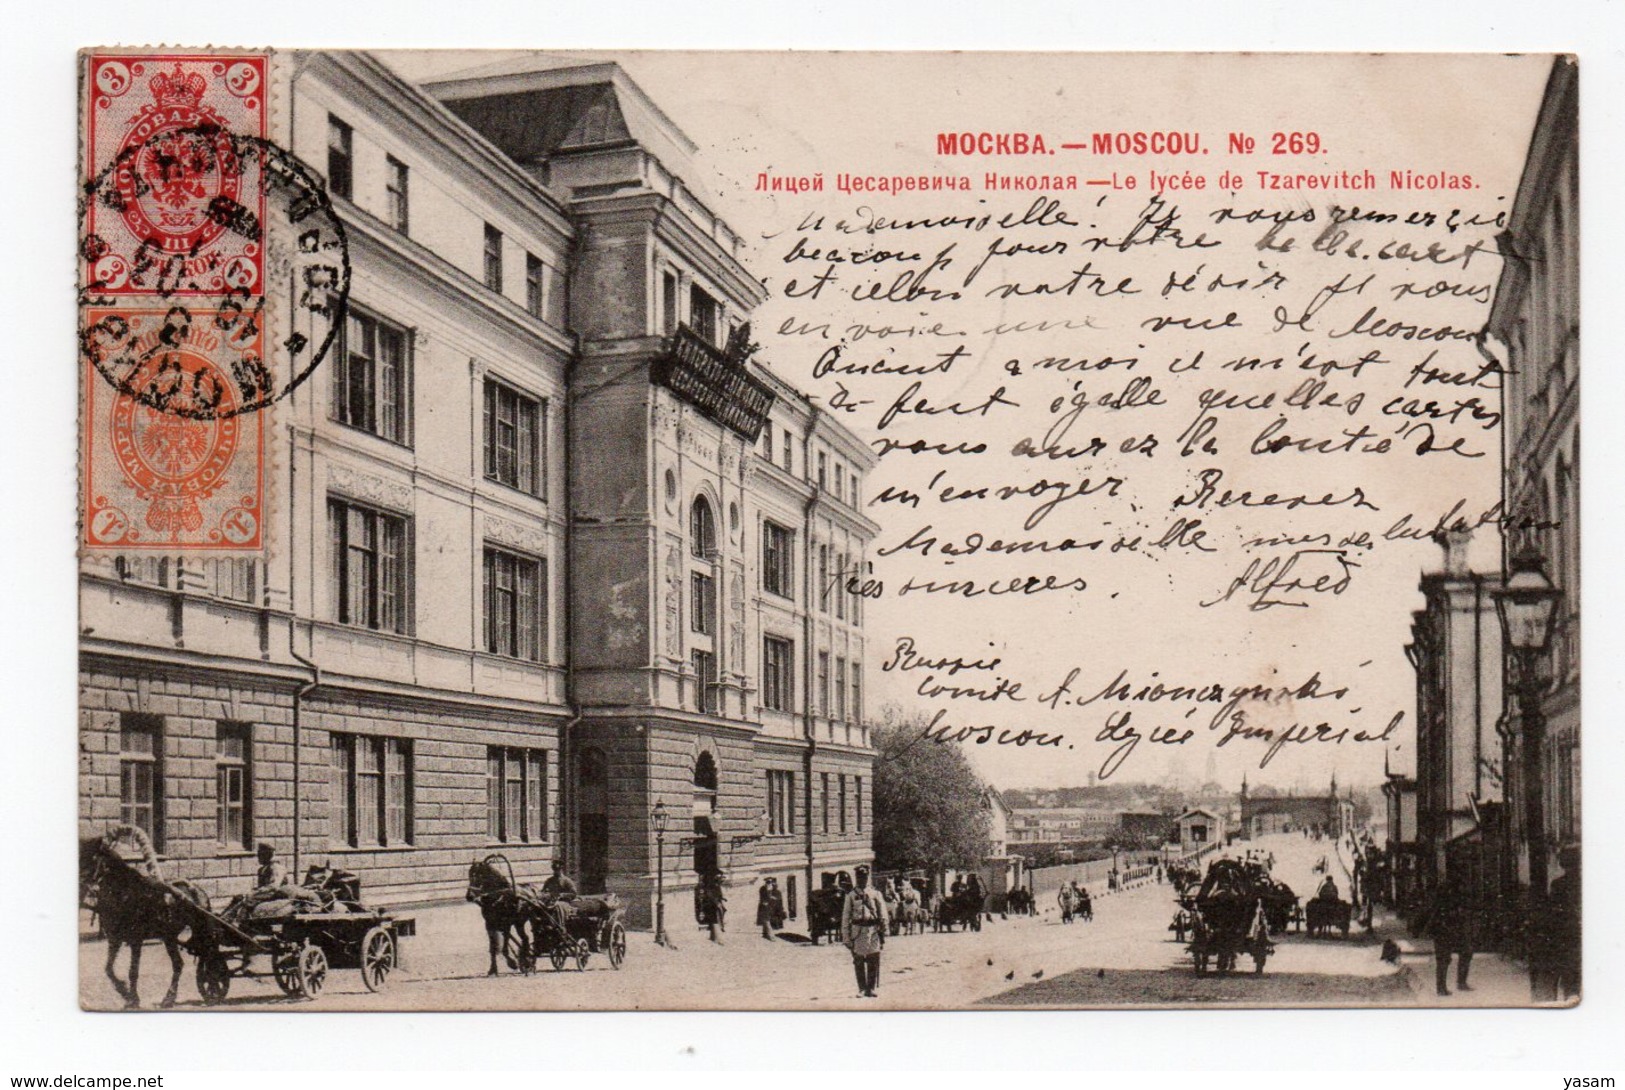 МОСКВА. — MOSCOU. № 269.
Лицей Цесаревича Николая — Le lycée de Tzarevitch Nicolas.
Mademoiselle! Je vous remerçie
beacoup pour votre belle cart
et selon votre désir je vous
envoie une vue de Moscou
Quant a moi il m'est tout-
-à-fait égalle quelles cartes
vous aurez la bonté de
m'envoyer Recevez
Mademoiselle mes salutation
très sinceres. Alfred
Russie
Comte A. Mionczynski
Moscou. Lycée Impérial.
3 3
ПОЧТОВАЯ МАРКА
III
3 3
МОСКВА
МАРКА
ПОЧТОВАЯ
1 1
delcampe.net
yasam